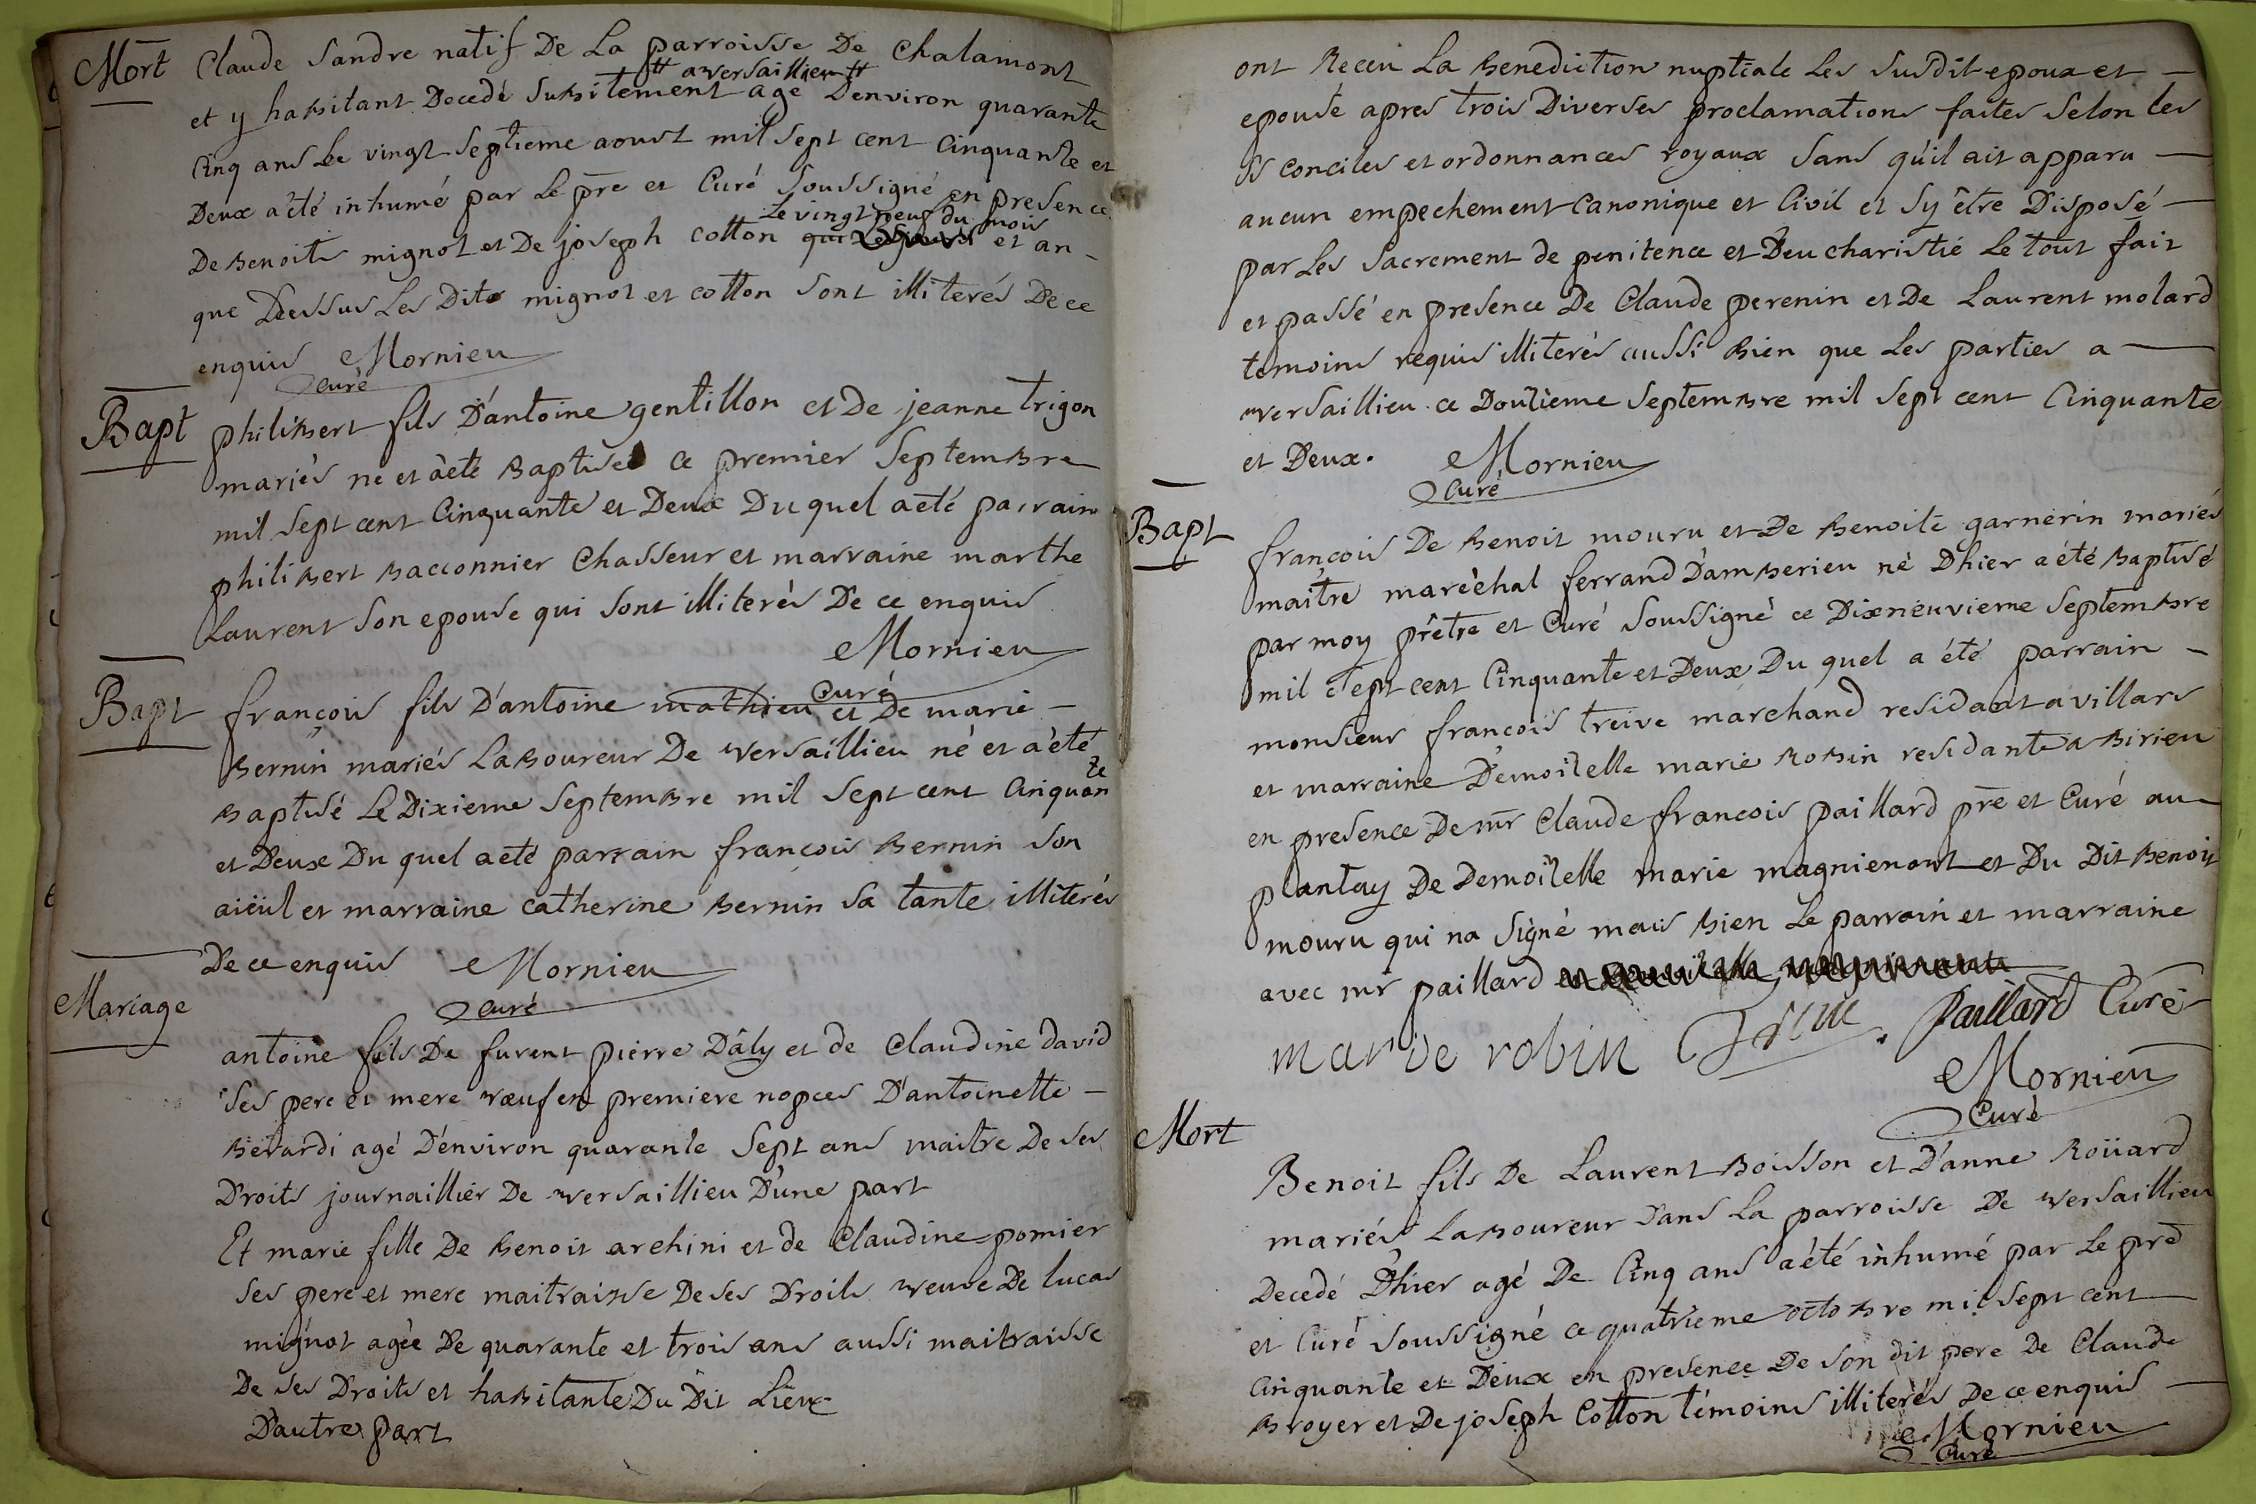 Mort
Claude Sandre natif De La parroisse De Chalamont
# a versaillieu #
et y habitant Decedé subitement agé D'environ quarante
Cinq ans Le vingt septieme aoust mil sept cent Cinquante et
Deux a èté inhumé par Le pre et Curé soussigné en presence
Le vingt neuf du mois
De Benoite mignot et De joseph cotton et an-
que Dessus Les Dits mignot et cotton sont illiterés De ce
enquis Mornieu
curé
Bapt
philibert fils D'antoine gentillon et De jeanne trigon
mariés né et àeté Baptisé ce premier septembre
mil sept cent Cinquante et Deux Du quel aeté parrain
philibert Bacconnier Chasseur et marraine marthe
Laurent son epouse qui sont illiterés De ce enquis
Mornieu
Curé
Bapt
françois fils D'antoine mathieu et De marie -
Bernin mariés Laboureur De versaillieu né et a été
Baptisé Le Dixieme septembre mil sept cent Cinquan
te
et Deux Du quel aeté parrain françois Bernin son
aïeul et marraine catherine Bernin sa tante illiterés
De ce enquis Mornieu
curé
Mariage
antoine fils De furent pierre Dâly et de Claudine david
ses pere et mere vœuf en premiere nopces D'antoinette -
Berardi agé D'environ quarante sept ans maitre De ses
Droits journaillier De versaillieu D'une part
Et marie fille De Benoit archini et de Claudine pomier
ses pere et mere maitraisse De ses Droits veuve De lucas
mignot agée De quarante et trois ans aussi maitraisse
De ses Droits et habitante Du Dit Lieu
D'autre part
ont Receu La Benediction nuptiale Les susdit epoux et -
epouse apres trois Diverses proclamations faites selon les
SS conciles et ordonnances royaux sans qu'il ait apparu -
aucun empechement canonique et Civil et sy être Disposé -
par Les sacrement de penitence et D'eucharistie Le tout fait
et passé en presence De Claude perenin et De Laurent molard
temoins requis illiterés aussi Bien que Les parties a -
versaillieu ce Douzieme septembre mil sept cent Cinquante
et Deux. Mornieu
Curé
Bapt
françois De Benoit mouru et De Benoite garnerin mariés
maître marèchal ferrand D'amberieu né D'hier a été Baptisé
par moy prêtre et Curé soussigné ce Dixneuvieme septembre
mil sept cent Cinquante et Deux Du quel a été parrain -
monsieur françois treive marchand residant a villars
et marraine Demoiselle marie Robin residante a Birieu
en presence De mr Claude francois paillard pre et Curé au
plantay De Demoiselle marie magnienont et Du Dit Benoit
mouru qui na signé mais Bien Le parrain et marraine
avec mr paillard
marie robin Treive. Paillard Curé
Mornieu
Curé
Mort
Benoit fils De Laurent Boisson et D'anne Roüard
mariés Laboureur Dans La parroisse De versaillieu
Decedé D'hier agé De Cinq ans aété inhumé par Le pre
et Curé soussigné ce quatrieme octobre mil sept cent
Cinquante et Deux en presence De son dit pere De Claude
Broyer et De joseph Cotton témoins illiterés De ce enquis -
Mornieu
Curé